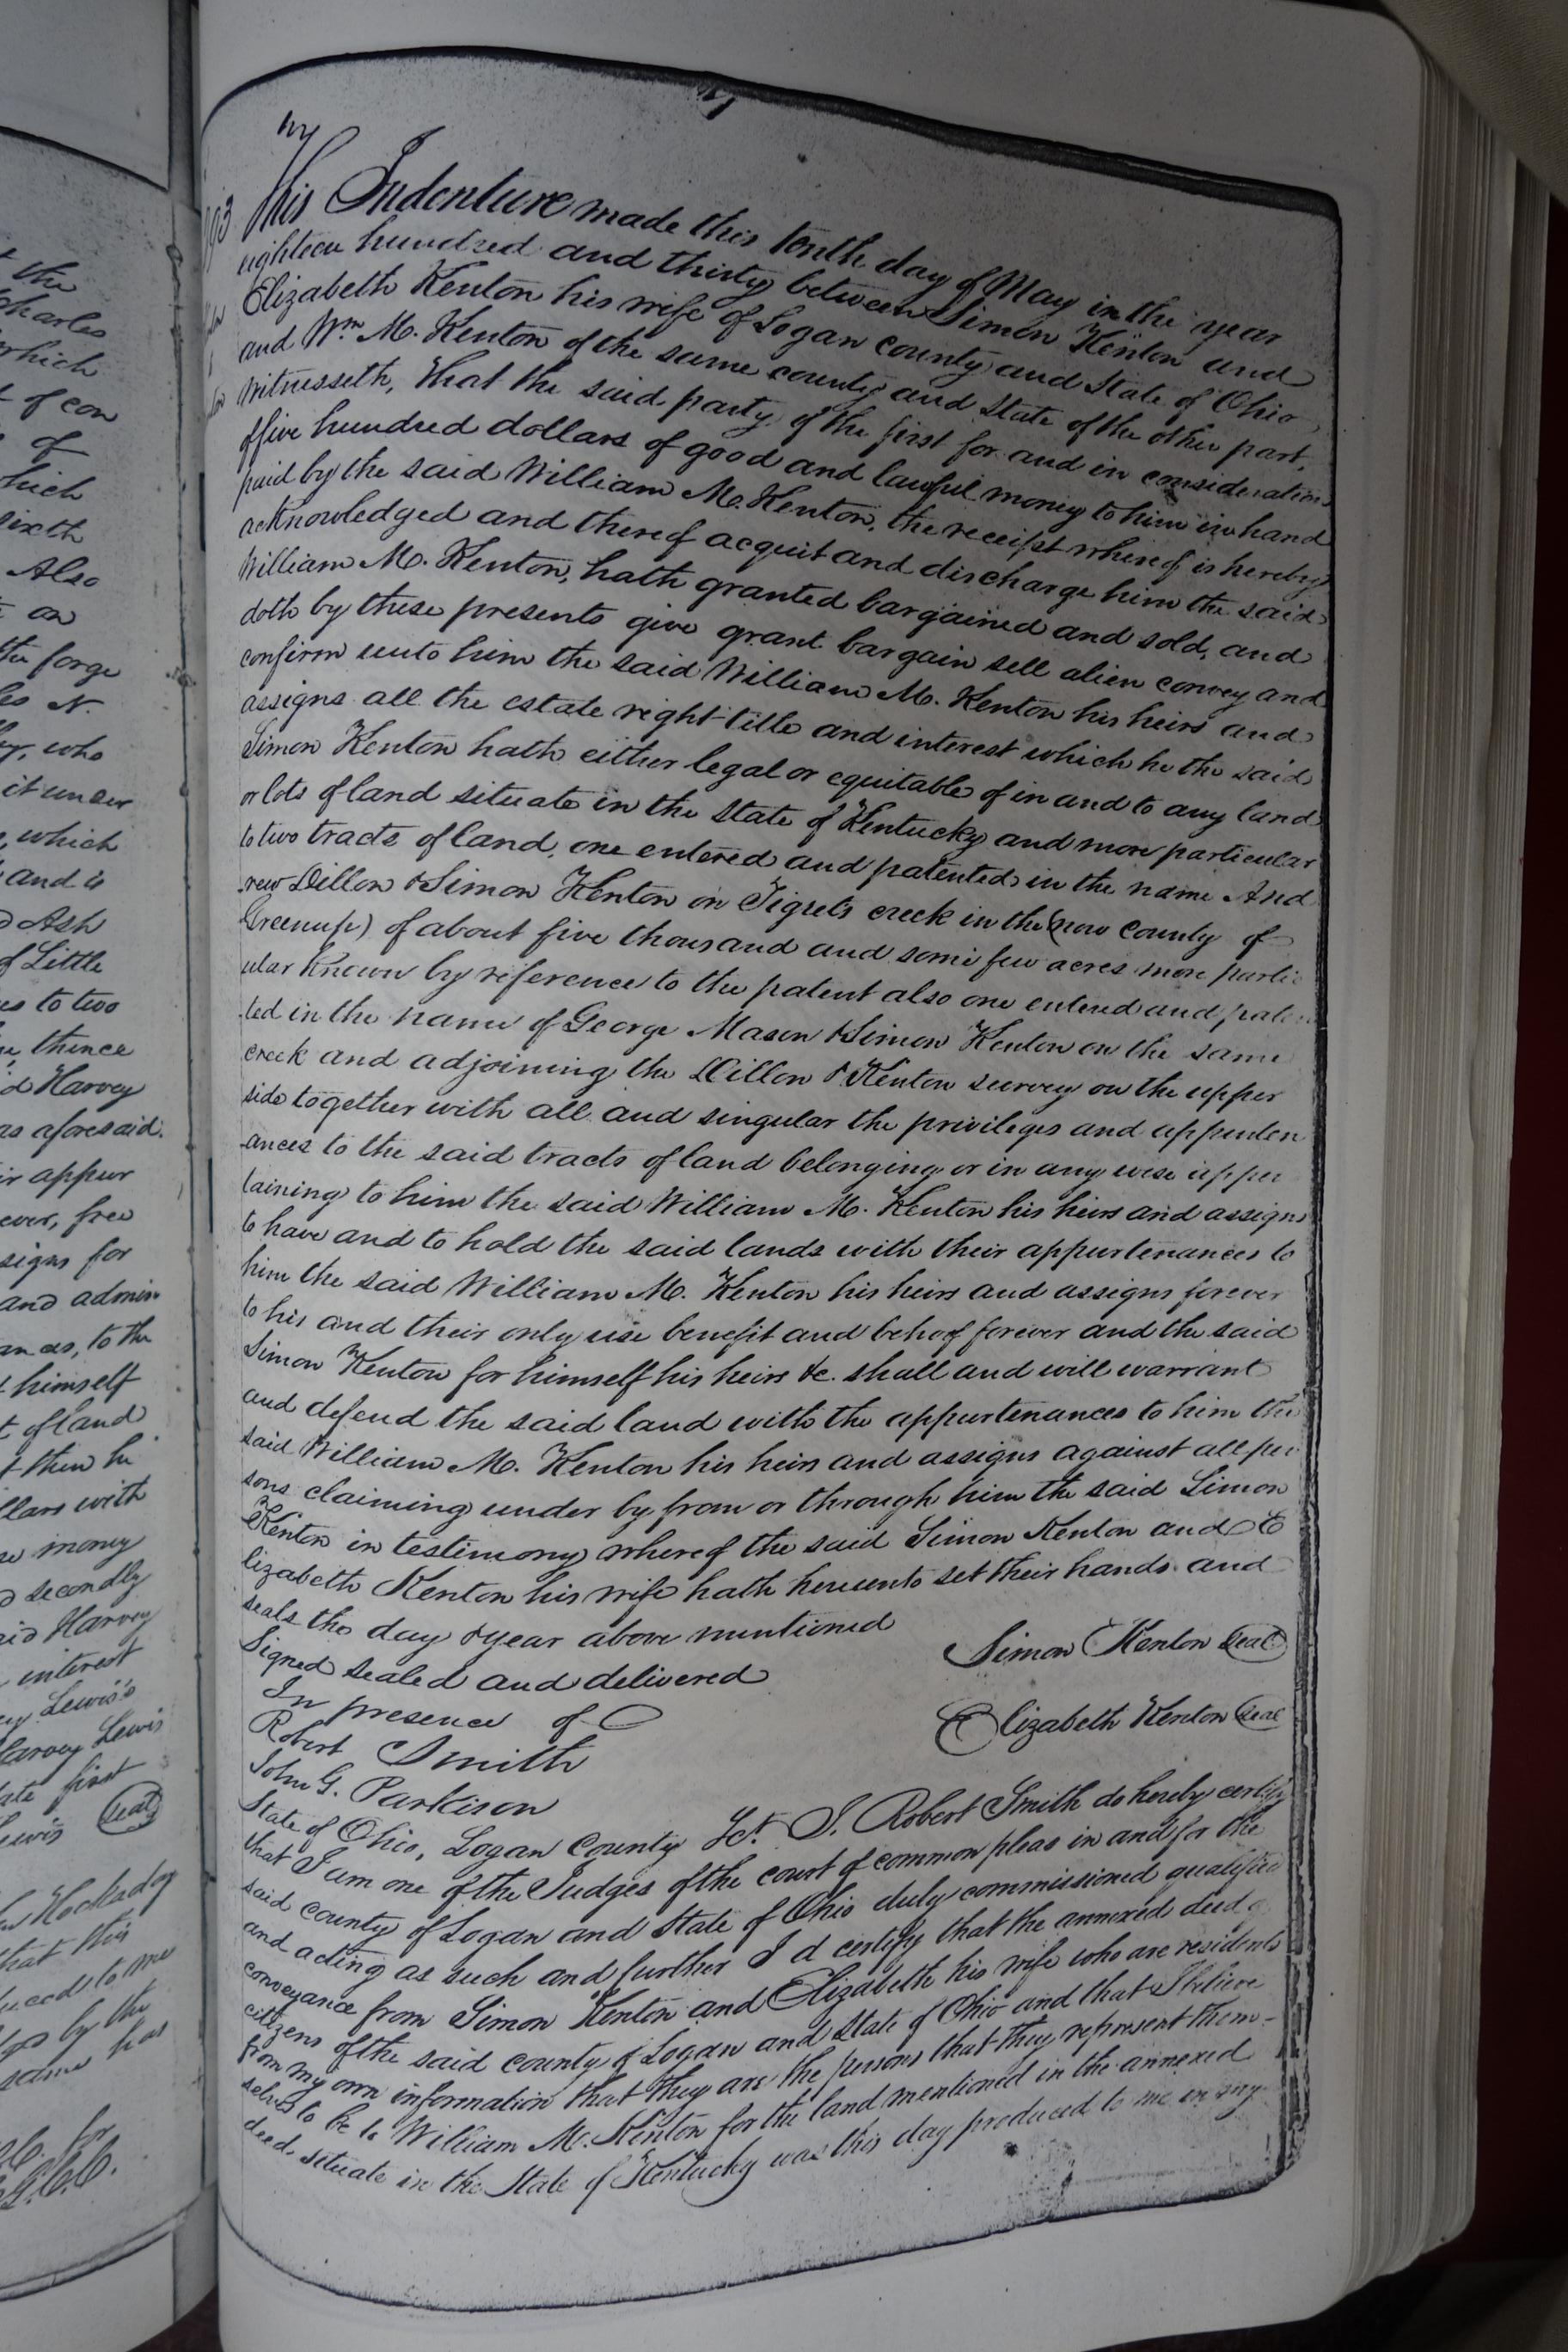 the
Charles
which
t of con
of
hich
Sixth
Also
t on
the forge
les N.
who
it under
, which
and is
Ash
of Little
us to two
thence
d Harvey
as aforesaid.
ir appur
ever, free
signs for
and admin
ances, to the
t himself
t of land
t then he
llars with
money
secondly
aid Harvey
interest
Lewis's
Harvey Lewis
date first
Lewis Seal
Hocksday
that this
duced to me
by the
same has
for
This Indenture made this tenth day of May in the year
eighteen hundred and thirty between Simon Kenton and
Elizabeth Kenton his wife of Logan county and State of Ohio
and Wm. M. Kenton of the same county and State of the other part,
Witnesseth, That the said party of the first for and in consideration
of five hundred dollars of good and lawful money to him in hand
paid by the said William M. Kenton, the receipt whereof is hereby
acknowledged and thereof acquit and discharge him the said
William M. Kenton, hath granted bargained and sold, and
doth by these presents give grant bargain sell alien convey and
confirm unto him the said William M. Kenton his heirs and
assigns all the estate right title and interest which he the said
Simon Kenton hath either legal or equitable of in and to any land
or lots of land situate in the State of Kentucky and more particular
to two tracts of land, one entered and patented in the name And
rew Dillon & Simon Kenton on Tigret's creek in the (now County of
Greenup) of about five thousand and some few acres more partic
ular known by reference to the patent also one entered and paten
ted in the name of George Mason & Simon Kenton on the same
creek and adjoining the Dillon & Kenton survey on the upper
side together with all and singular the privileges and appurten
ances to the said tracts of land belonging or in any wise apper
taining to him the said William M. Kenton his heirs and assigns
to have and to hold the said lands with their appurtenances to
him the said William M. Kenton his heirs and assigns forever
to his and their only use benefit and behoof forever and the said
Simon Kenton for himself his heirs &c. shall and will warrant
and defend the said land with the appurtenances to him the
said William M. Kenton his heirs and assigns against all per
sons claiming under by from or through him the said Simon
Kenton in testimony whereof the said Simon Kenton and E
lizabeth Kenton his wife hath hereunto set their hands and
seals the day & year above mentioned
Signed sealed and delivered Simon Kenton Seal
In presence of
Robert Smith Elizabeth Kenton Seal
John G. Parkison
State of Ohio, Logan County Sct. I. Robert Smith do hereby certify
that I am one of the Judges of the court of common pleas in and for the
said county of Logan and State of Ohio duly commissioned qualified
and acting as such and further I d certify that the annexed deed o
conveyance from Simon Kenton and Elizabeth his wife who are residents
citizens of the said county of Logan and State of Ohio and that I believe
from my own information that they are the persons that they represent them-
selves to be to William M. Kenton for the land mentioned in the annexed
deed, situate in the State of Kentucky was this day produced to me in my